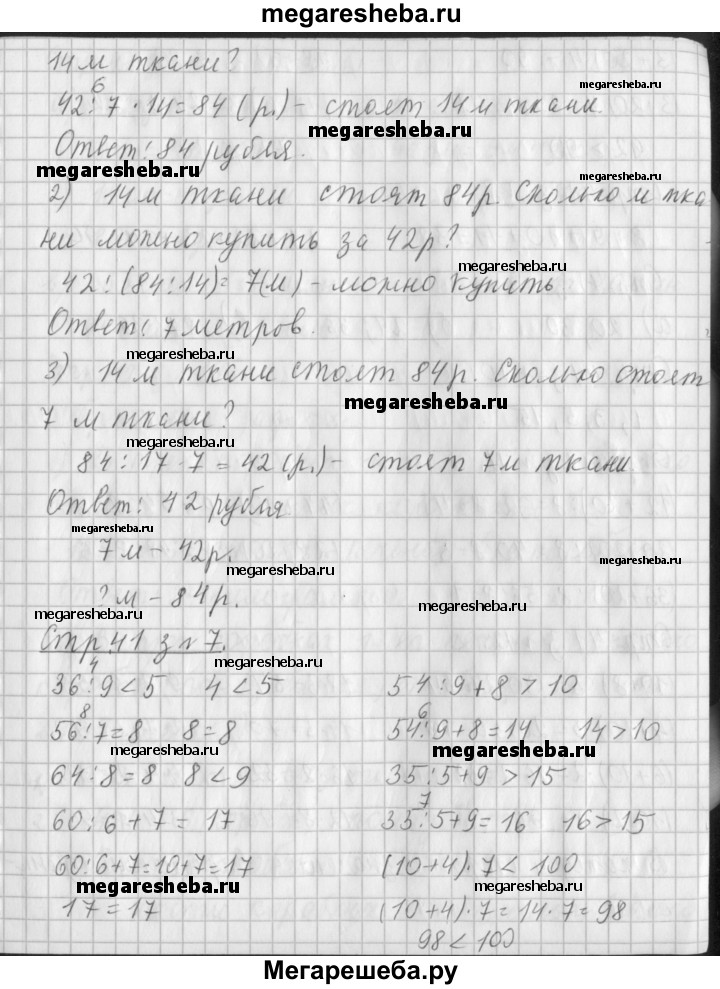 megaresheba.ru
14 м ткани?
megaresheba.ru
6
42:7·14=84 (р.) – стоят 14 м ткани.
megaresheba.ru
Ответ: 84 рубля.
megaresheba.ru
megaresheba.ru
2) 14 м ткани стоят 84 р. Сколько м тка
ни можно купить за 42 р?
megaresheba.ru
42:(84:14)= 7(м) – можно купить
Ответ: 7 метров.
megaresheba.ru
3) 14 м ткани стоят 84 р. Сколько стоят
megaresheba.ru
7 м ткани?
megaresheba.ru
84:17·7=42 (р.) – стоят 7 м ткани.
Ответ: 42 рубля
megaresheba.ru
7 м – 42 р.
megaresheba.ru
megaresheba.ru
? м – 84 р.
megaresheba.ru
megaresheba.ru
Стр 41 з № 7.
megaresheba.ru
4
36:9<5 4<5
54:9+8>10
8
56:7=8 8=8
6
54:9+8=14 14>10
megaresheba.ru
megaresheba.ru
64:8=8 8<9
35:5+9>15
60:6+7=17
7
35:5+9=16 16>15
60:6+7=10+7=17
(10+4)·7<100
megaresheba.ru
megaresheba.ru
17=17
(10+4)·7=14·7=98
98<100
Мегарешеба.ру